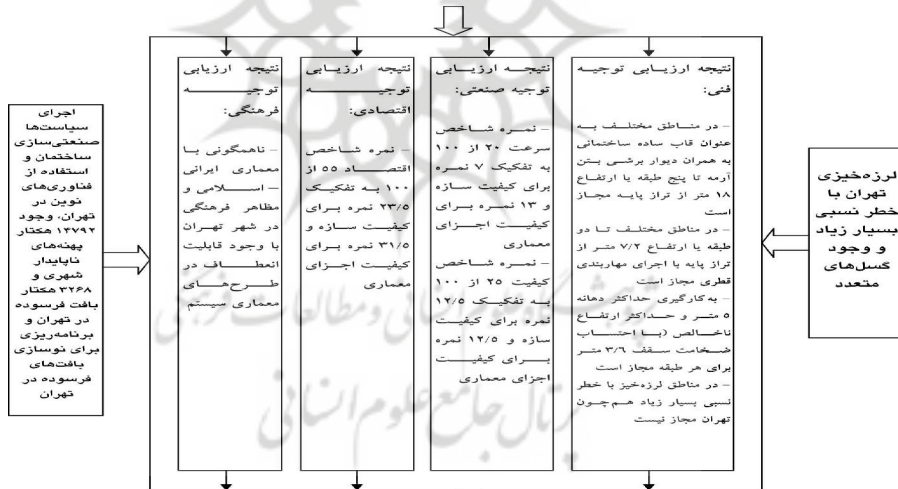 لرزه‌خیزی
تهران با
خطر نسبی
بسیار زیاد
و وجود
گسل‌های
متعدد
نتیجه ارزیابی توجیه
فنی:
– در مناطق مختلف به
عنوان قاب ساده ساختمانی
به همران دیوار برشی بتن
آرمه تا پنج طبقه یا ارتفاع
۱۸ متر از تراز پایه مجاز
است
– در مناطق مختلف تا دو
طبقه یا ارتفاع ۷/۲ متر از
تراز پایه با اجرای مهاربندی
قطری مجاز است
– به کارگیری حداکثر دهانه
۵ متر و حداکثر ارتفاع
ناخالص (با احتساب
ضخامت سقف ۳/۶ متر
برای هر طبقه مجاز است
– در مناطق لرزه‌خیز با خطر
نسبی بسیار زیاد هم‌چون
تهران مجاز نیست
نتیجه ارزیابی
توجیه صنعتی:
– نمره شاخص
سرعت ۲۰ از ۱۰۰
به تفکیک ۷ نمره
برای کیفیت سازه
و ۱۳ نمره برای
کیفیت اجزای
معماری
– نمره شاخص
کیفیت ۲۵ از ۱۰۰
به تفکیک ۱۲/۵
نمره برای کیفیت
سازه و ۱۲/۵ نمره
برای کیفیت
اجزای معماری
نتیجه ارزیابی
توجیه
اقتصادی:
– نمره شاخص
اقتصاد ۵۵ از
۱۰۰ به تفکیک
۲۳/۵ نمره برای
کیفیت سازه و
۳۱/۵ نمره برای
کیفیت اجزای
معماری
نتیجه ارزیابی
توجیه
فرهنگی:
– ناهمگونی با
معماری ایرانی
– اسلامی و
مظاهر فرهنگی
در شهر تهران
با وجود قابلیت
انعطاف در
طرح‌های
معماری سیستم
اجرای
سیاست‌ها
صنعتی‌سازی
ساختمان و
استفاده از
فناوری‌های
نوین در
تهران، وجود
۱۴۷۹۲ هکتار
پهنه‌های
ناپایدار
شهری و
۳۲۶۸ هکتار
بافت فرسوده
در تهران و
برنامه‌ریزی
برای نوسازی
بافت‌های
فرسوده در
تهران
پژوهشگاه علوم انسانی و مطالعات فرهنگی
پرتال جامع علوم انسانی